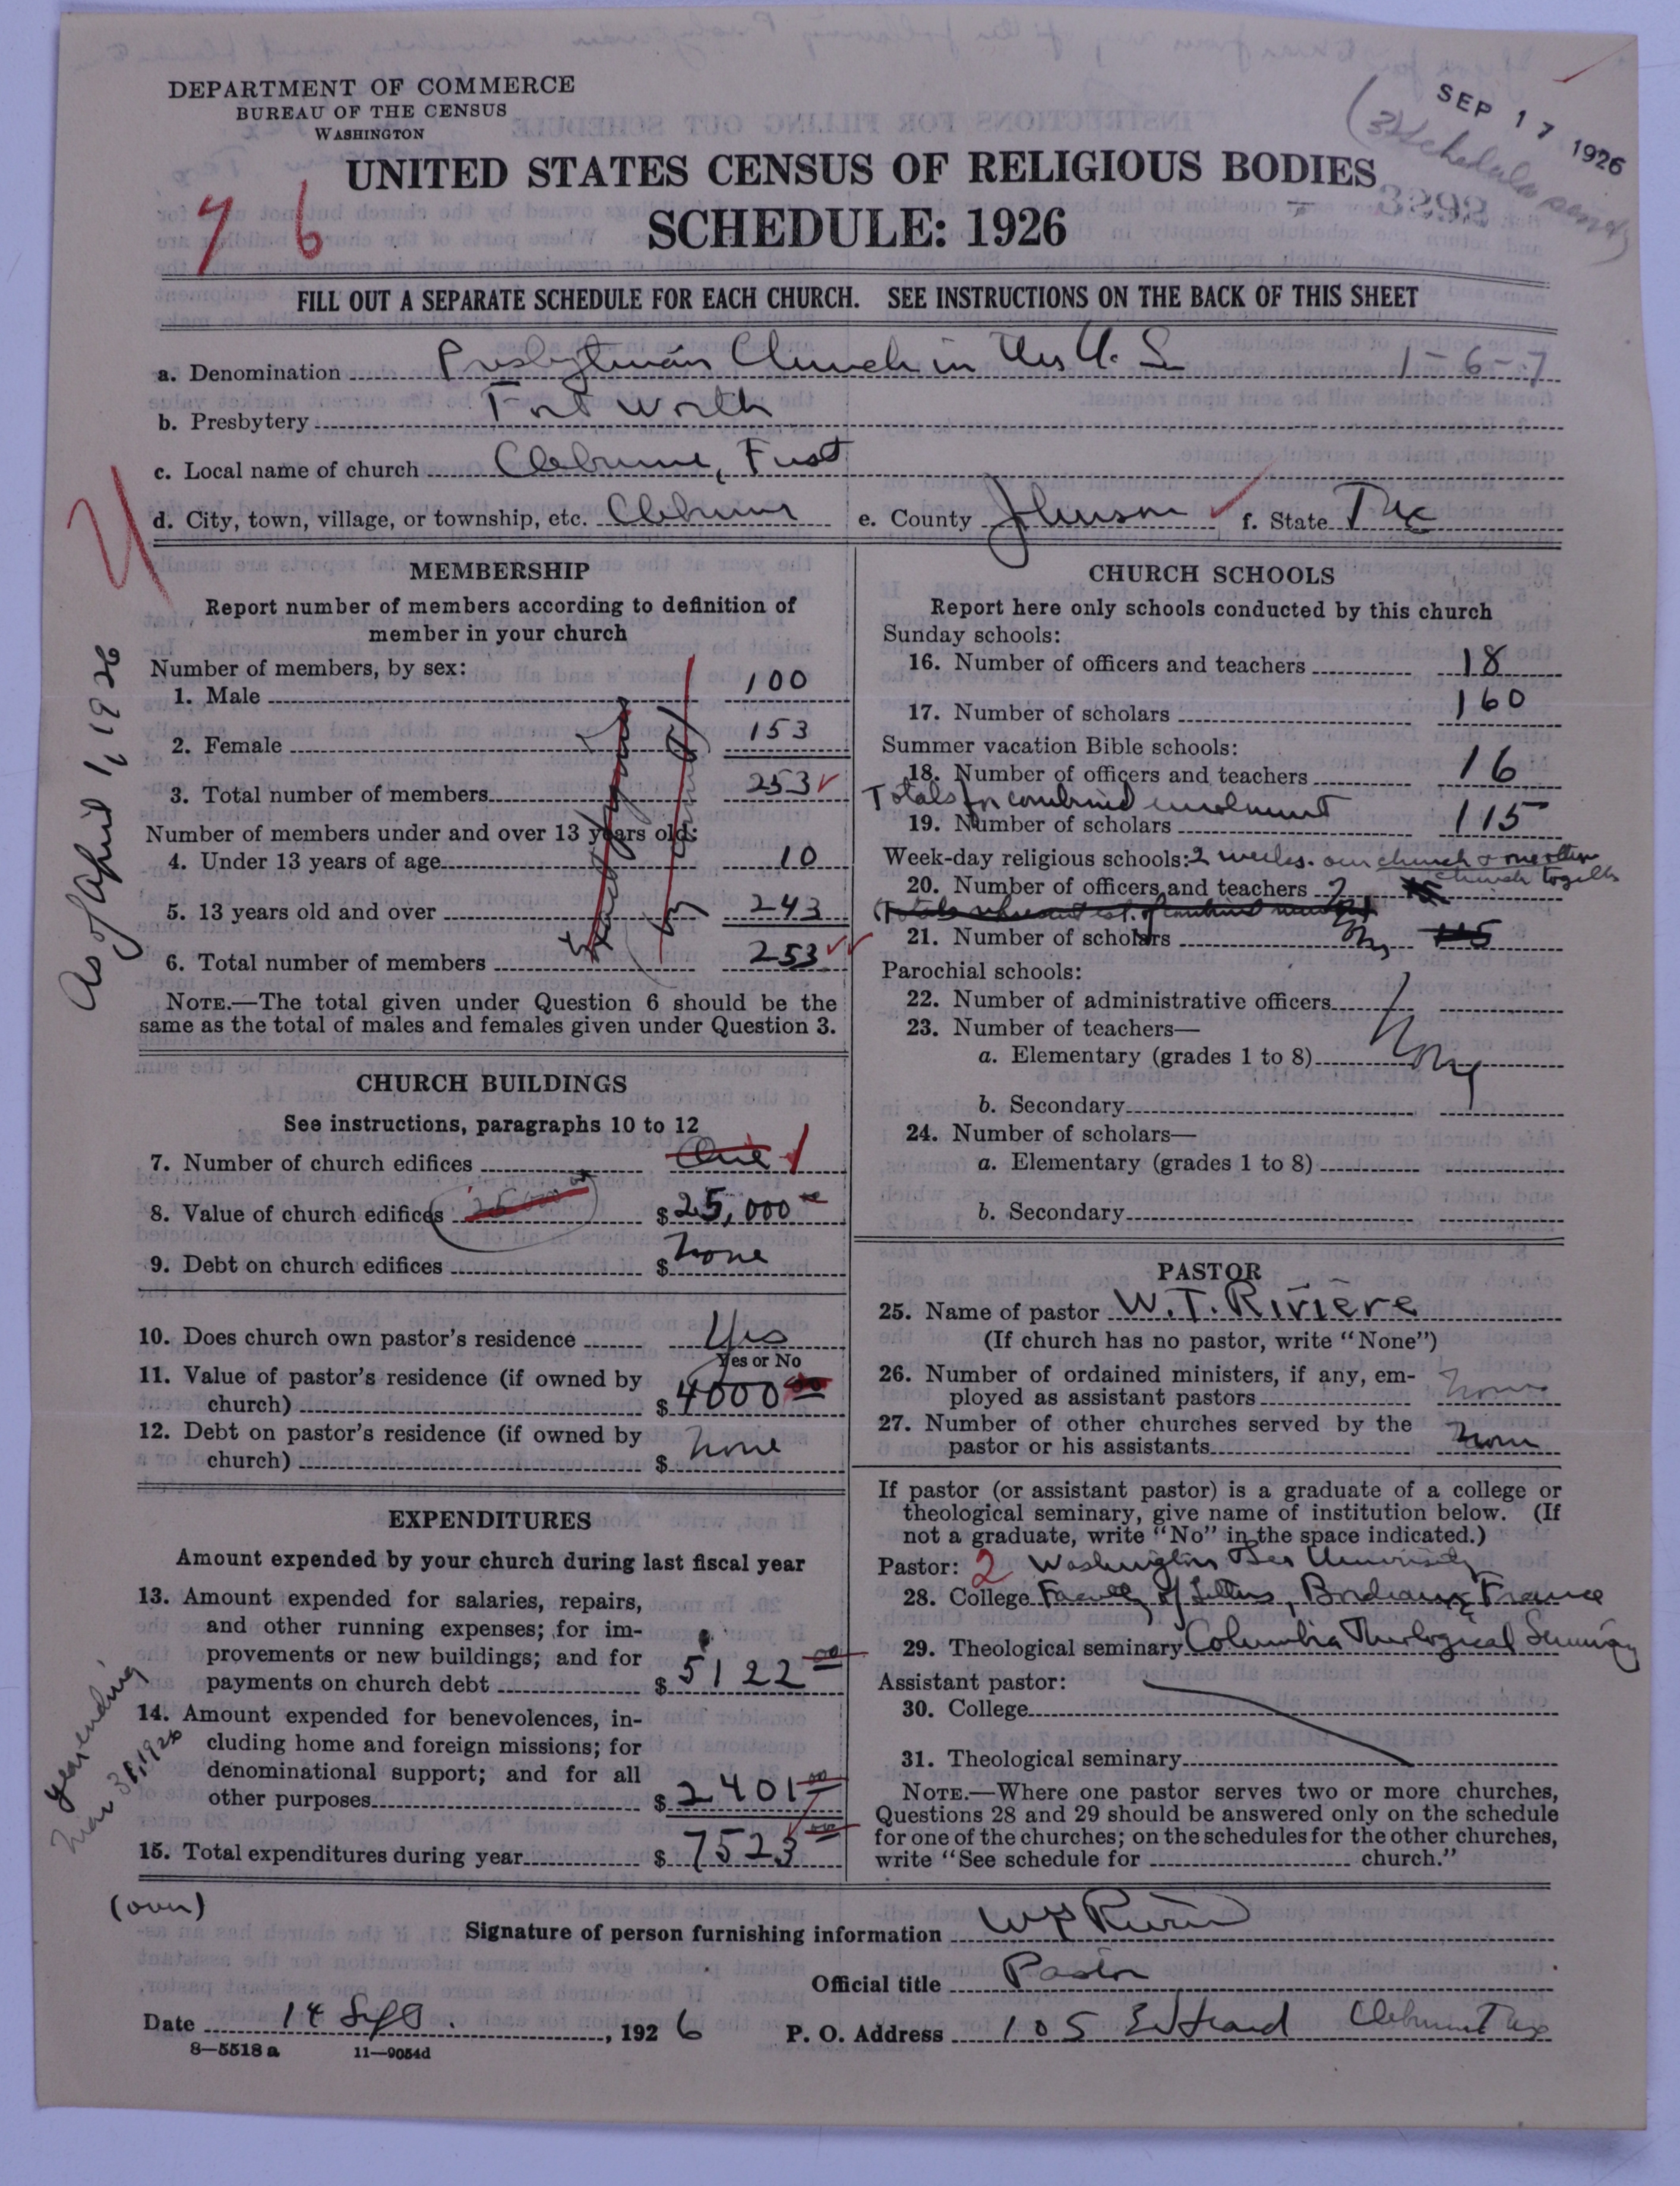 DEPARTMENT OF COMMERCE
BUREAU OF THE CENSUS
WASHINGTON
SEP 17 1926
(3 Schedules send)
3292
UNITED STATES CENSUS OF RELIGIOUS BODIES
SCHEDULE: 1926
76
FILL OUT A SEPARATE SCHEDULE FOR EACH CHURCH. SEE INSTRUCTIONS ON THE BACK OF THIS SHEET
a. Denomination Presbyterian Church in the U.S. 1-6-7
b. Presbytery Fort Worth
c. Local name of church Cleburne, First
d. City, town, village, or township, etc. Cleburne e. County Johnson f. State Tex
As of April 1, 1926
MEMBERSHIP
Report number of members according to definition of
member in your church
Number of members, by sex:
1. Male 100
2. Female 153
3. Total number of members 253
Number of members under and over 13 years old:
4. Under 13 years of age 10
5. 13 years old and over 243
6. Total number of members 253
NOTE.—The total given under Question 6 should be the
same as the total of males and females given under Question 3.
CHURCH BUILDINGS
See instructions, paragraphs 10 to 12
7. Number of church edifices One 1
8. Value of church edifices 25000 $ 25,000
9. Debt on church edifices $ None
10. Does church own pastor's residence Yes
Yes or No
11. Value of pastor's residence (if owned by
church) $ 4000 00
12. Debt on pastor's residence (if owned by
church) $ none
EXPENDITURES
Amount expended by your church during last fiscal year
13. Amount expended for salaries, repairs,
and other running expenses; for im-
provements or new buildings; and for
payments on church debt $ 5122 00
14. Amount expended for benevolences, in-
cluding home and foreign missions; for
denominational support; and for all
other purposes $ 2401 00
15. Total expenditures during year $ 7523 00
year ending
Mar 31, 1926
(over)
CHURCH SCHOOLS
Report here only schools conducted by this church
Sunday schools:
16. Number of officers and teachers 18
17. Number of scholars 160
Summer vacation Bible schools:
18. Number of officers and teachers 16
Totals for combined enrolment
19. Number of scholars 115
Week-day religious schools: 2 weeks. our church & one other
church together
20. Number of officers and teachers
21. Number of scholars 115
Parochial schools:
22. Number of administrative officers
23. Number of teachers—
a. Elementary (grades 1 to 8) None
b. Secondary
24. Number of scholars—
a. Elementary (grades 1 to 8)
b. Secondary
PASTOR
25. Name of pastor W.T. Riviere
(If church has no pastor, write "None")
26. Number of ordained ministers, if any, em-
ployed as assistant pastors none
27. Number of other churches served by the
pastor or his assistants none
If pastor (or assistant pastor) is a graduate of a college or
theological seminary, give name of institution below. (If
not a graduate, write "No" in the space indicated.)
Pastor: 2 Washington Lee University
28. College Faculty of Letters, Bordeaux, France
29. Theological seminary Columbia Theological Seminary
Assistant pastor:
30. College
31. Theological seminary
NOTE.—Where one pastor serves two or more churches,
Questions 28 and 29 should be answered only on the schedule
for one of the churches; on the schedules for the other churches,
write "See schedule for church."
Signature of person furnishing information W T Riviere
Official title Pastor
Date 14 Sept. , 1926 P. O. Address 105 E Heard Cleburne Tex
8—5518 a 11—9054d